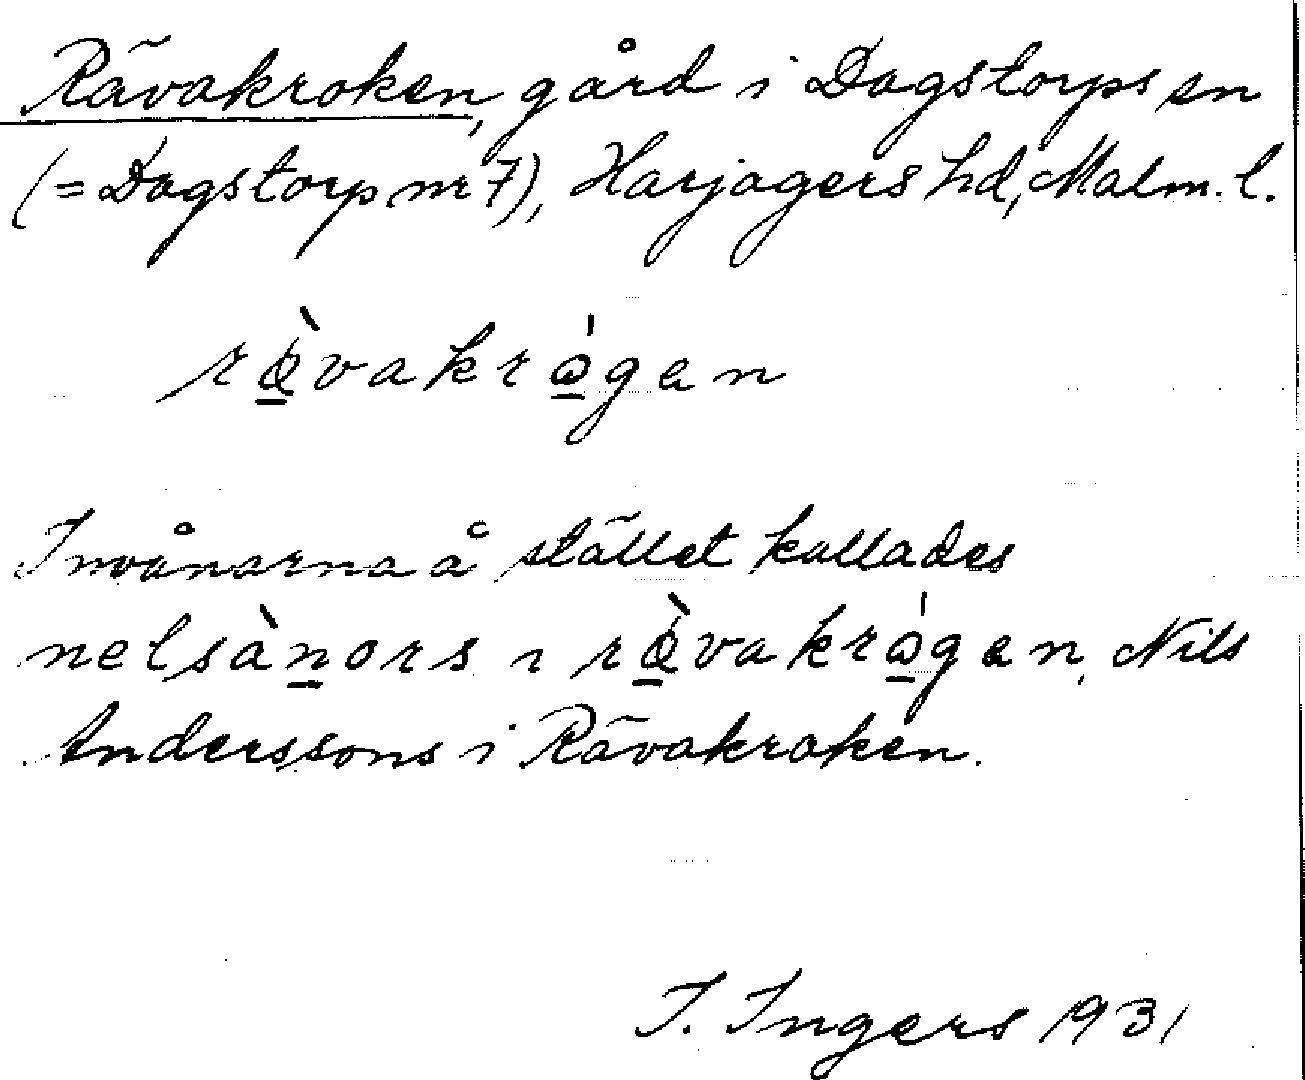 Rävakroken, gård i Dagstorps sn
(= Dagstorp nr 7), Harjagers hd, Malm. l.
rævakrogen
Invånarna å stället kallades
nelsànors i rævakrogen, Nils
Anderssons i Rävakroken.
I. Ingers 1931